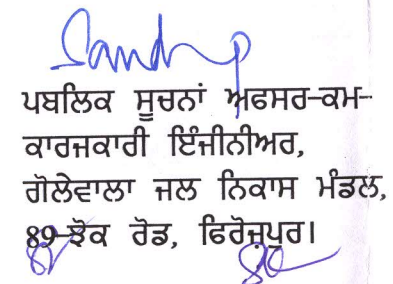 ਪਬਲਿਕ ਸੂਚਨਾਂ ਅਫਸਰ-ਕਮ-
ਕਾਰਜਕਾਰੀ ਇੰਜੀਨੀਅਰ,
ਗੋਲੇਵਾਲਾ ਜਲ ਨਿਕਾਸ ਮੰਡਲ,
89-ਝੋਕ ਰੋਡ, ਫਿਰੋਜ਼ਪੁਰ।